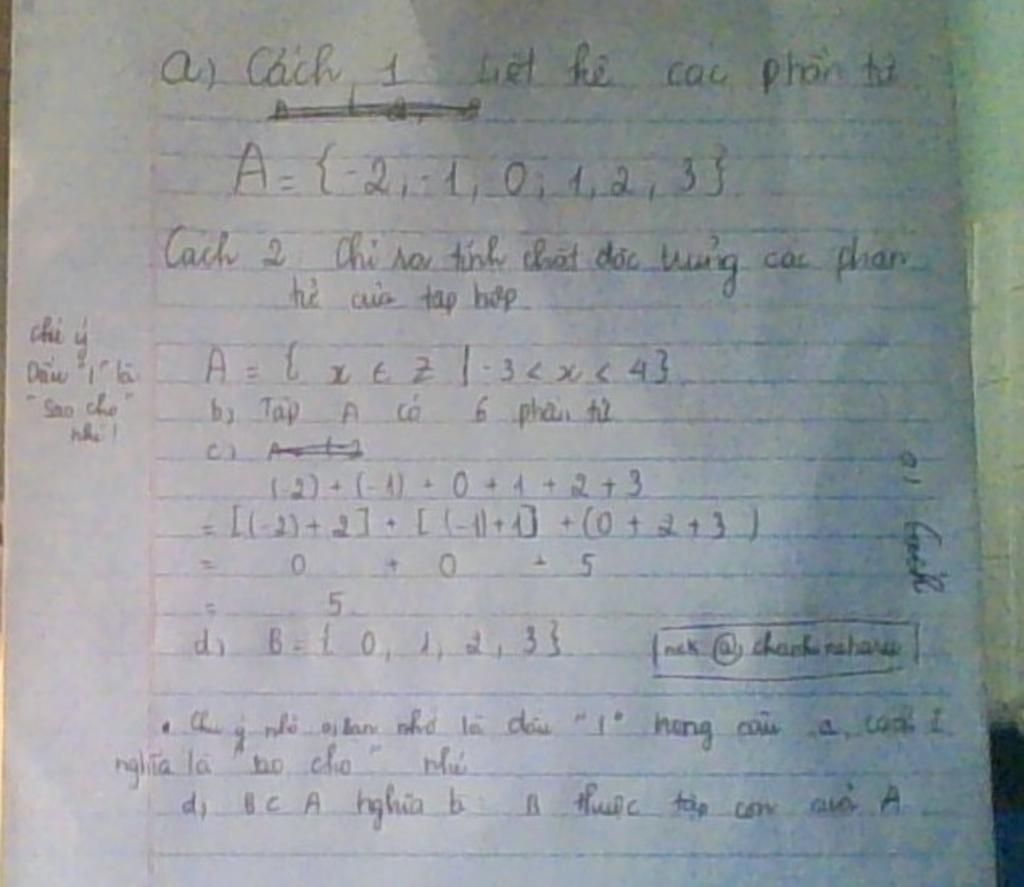 a) Cách 1 Liệt kê các phần tử
A = {-2, -1, 0, 1, 2, 3}
Cách 2 Chỉ ra tính chất đặc trưng các phần
tử của tập hợp
chú ý
Dấu "|" là
"sao cho"
nhé!
A = { x ∈ Z | -3 < x < 4}
b) Tập A có 6 phần tử
c)
(-2) + (-1) + 0 + 1 + 2 + 3
= [(-2) + 2] + [(-1) + 1] + (0 + 2 + 3)
= 0 + 0 + 5
= 5
d) B = { 0, 1, 2, 3}
• Chú ý nhỏ bạn nhớ là dấu "|" trong câu a, cách 2
nghĩa là "sao cho" nhé
d, B ⊂ A nghĩa là B thuộc tập con của A